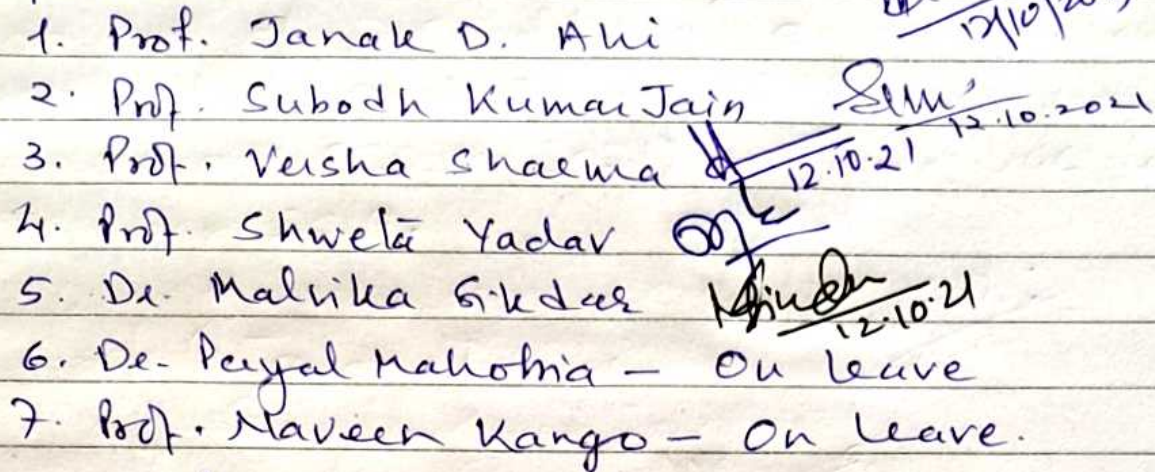 1. Prof. Janak D. Ahi 12/10/20
2. Prof. Subodh Kumar Jain 12.10.2021
3. Prof. Versha Sharma 12.10.21
4. Prof. Shwetā Yadav
5. Dr. Malvika Sikdar 12.10.21
6. Dr. Payal Mahobia - On leave
7. Prof. Naveen Kango - On leave.